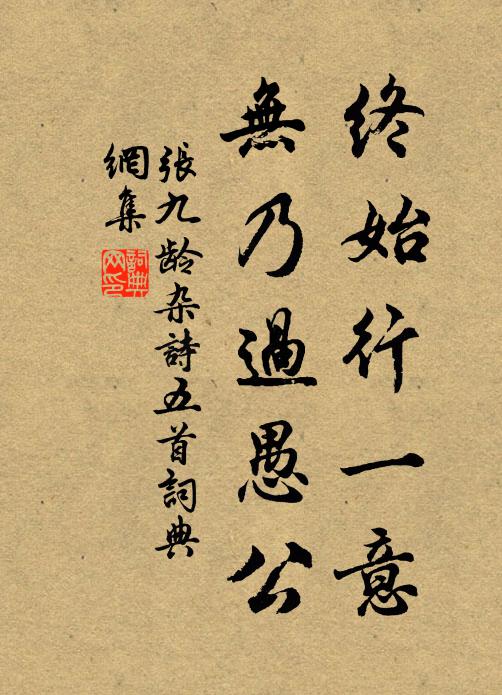 終始行一意
無乃過愚公
張九龄杂詩五首詞典
網集
詞典
网印